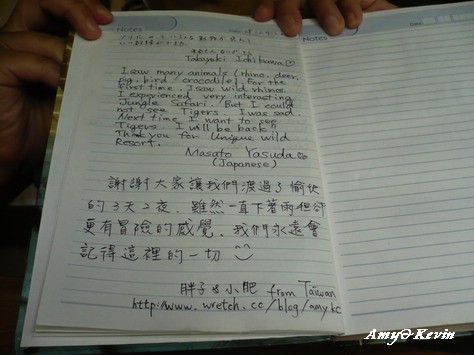 Notes
Takayuki Ichikawa
I saw many animals (rhino, deer,
pig, bird, crocodile). For the
first time, I saw wild rhinos.
I experienced very interesting
Jungle Safari. But I could
not see Tigers. I was sad.
Next time I want to see
Tigers. I will be back!!
Thank you for Unique Wild
Resort.
Masato Yasuda
(Japanese)
謝謝大家讓我們渡過了愉快
的3天2夜. 雖然一直下著雨但卻
更有冒險的感覺. 我們永遠會
記得這裡的一切
胖子&小肥 from Taiwan
http://www.wretch.cc/blog/amykc
Notes
Amy Kevin